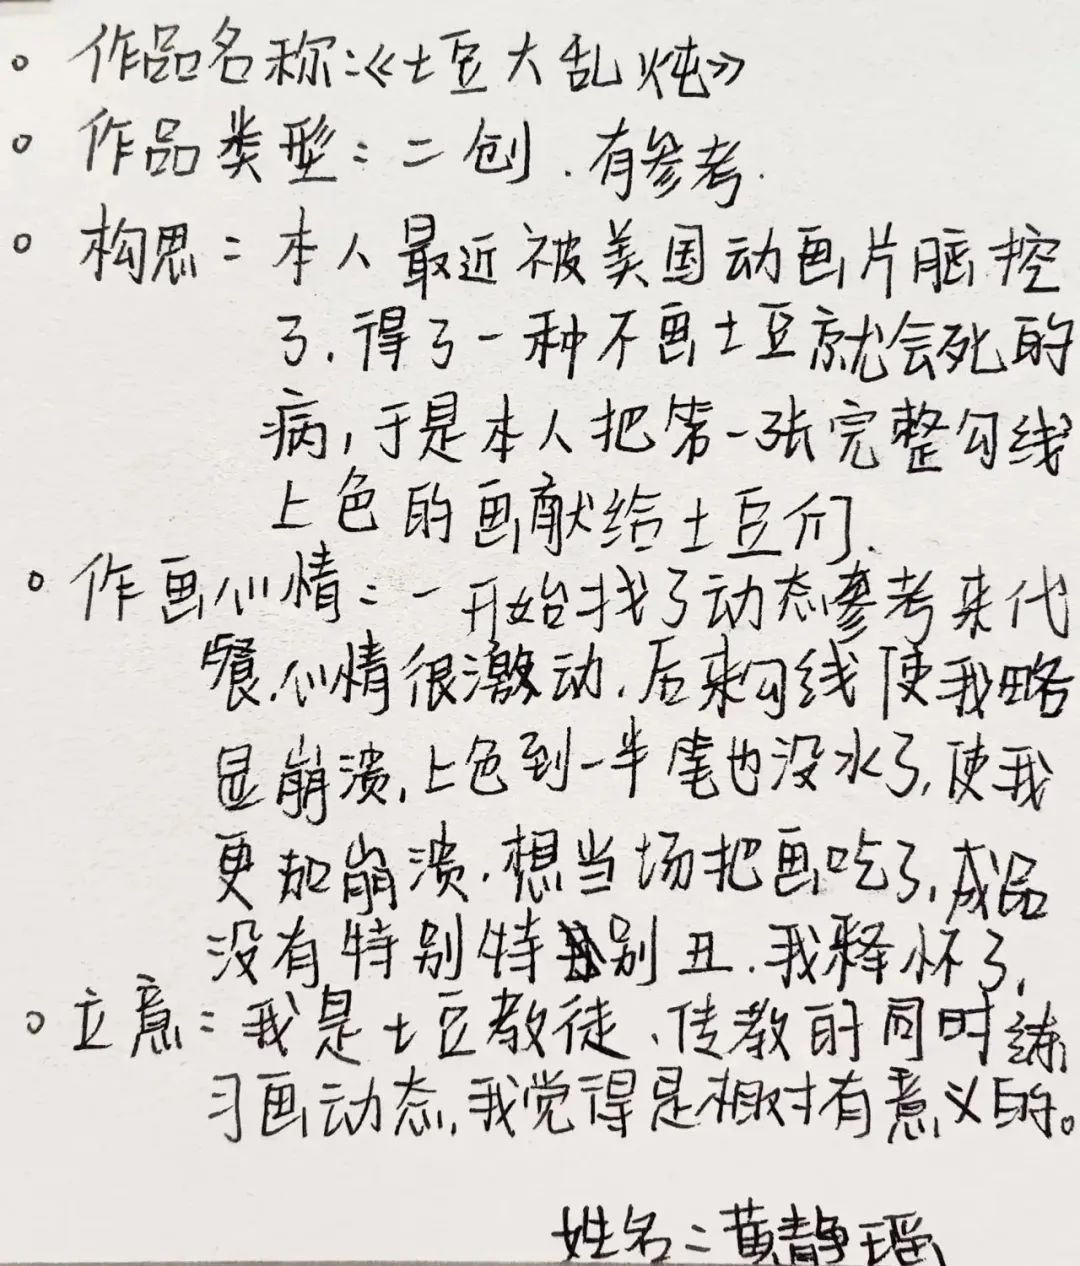 。作品名称:《土豆大乱炖》
。作品类型:二创.有参考.
。构思:本人最近被美国动画片脑控
了.得了一种不画土豆就会死的
病,于是本人把第一张完整勾线
上色的画献给土豆们.
。作画心情:一开始找了动态参考来代
餐.心情很激动.后来勾线使我略
显崩溃.上色到一半笔也没水了,使我
更加崩溃.想当场把画吃了,成品
没有特别特别丑.我释怀了,
。立意:我是土豆教徒.传教的同时练
习画动态,我觉得是相对有意义的。
姓名:黄静瑶